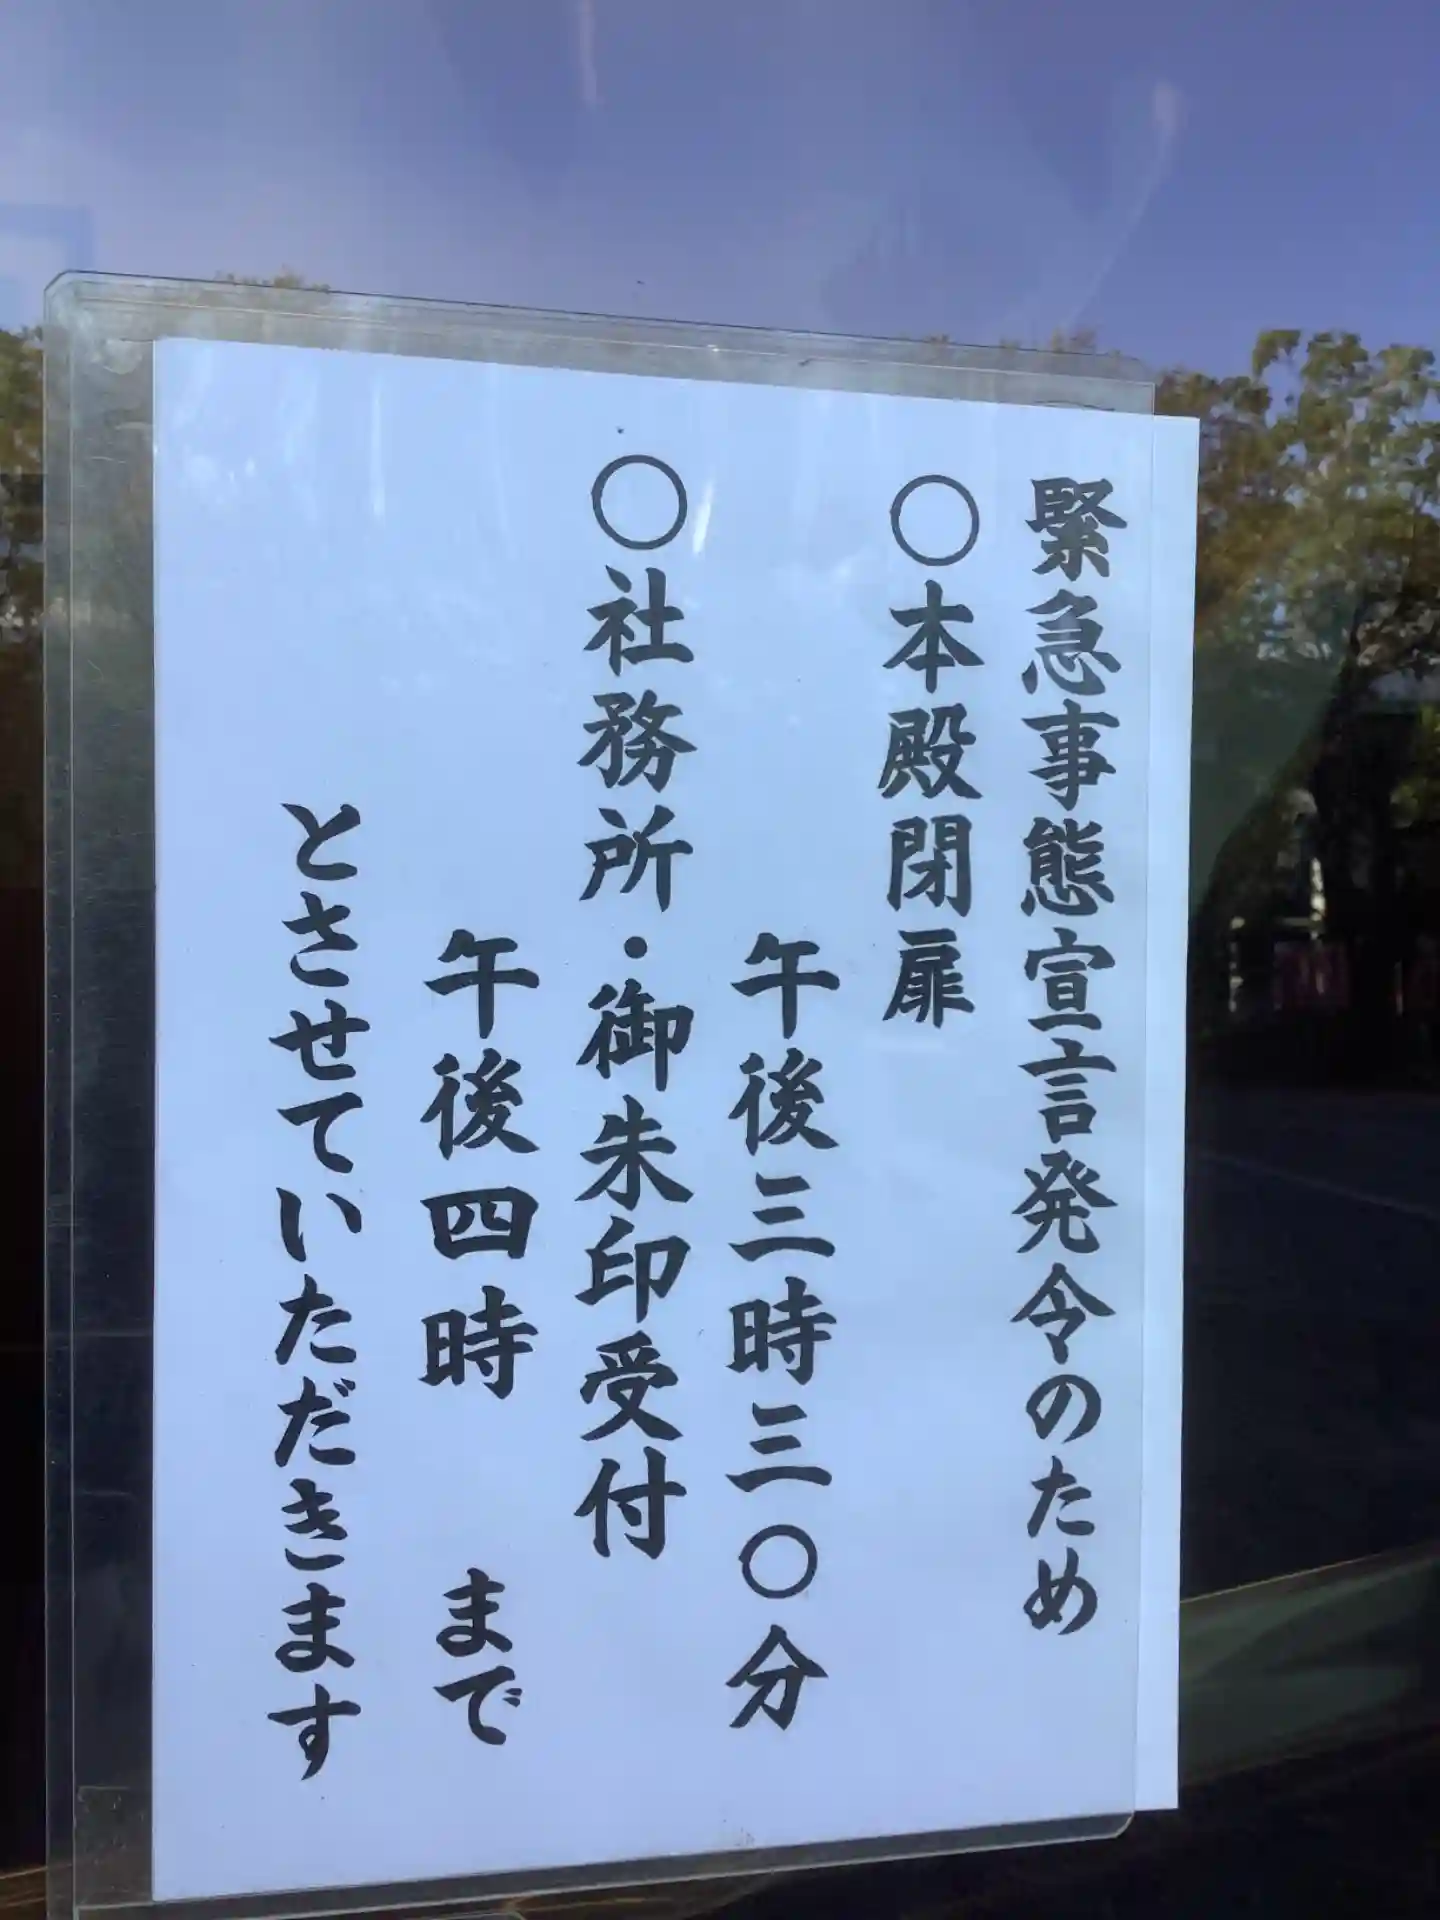 緊急事態宣言発令のため
○本殿閉扉
午後三時三〇分
○社務所・御朱印受付
午後四時　まで
とさせていただきます